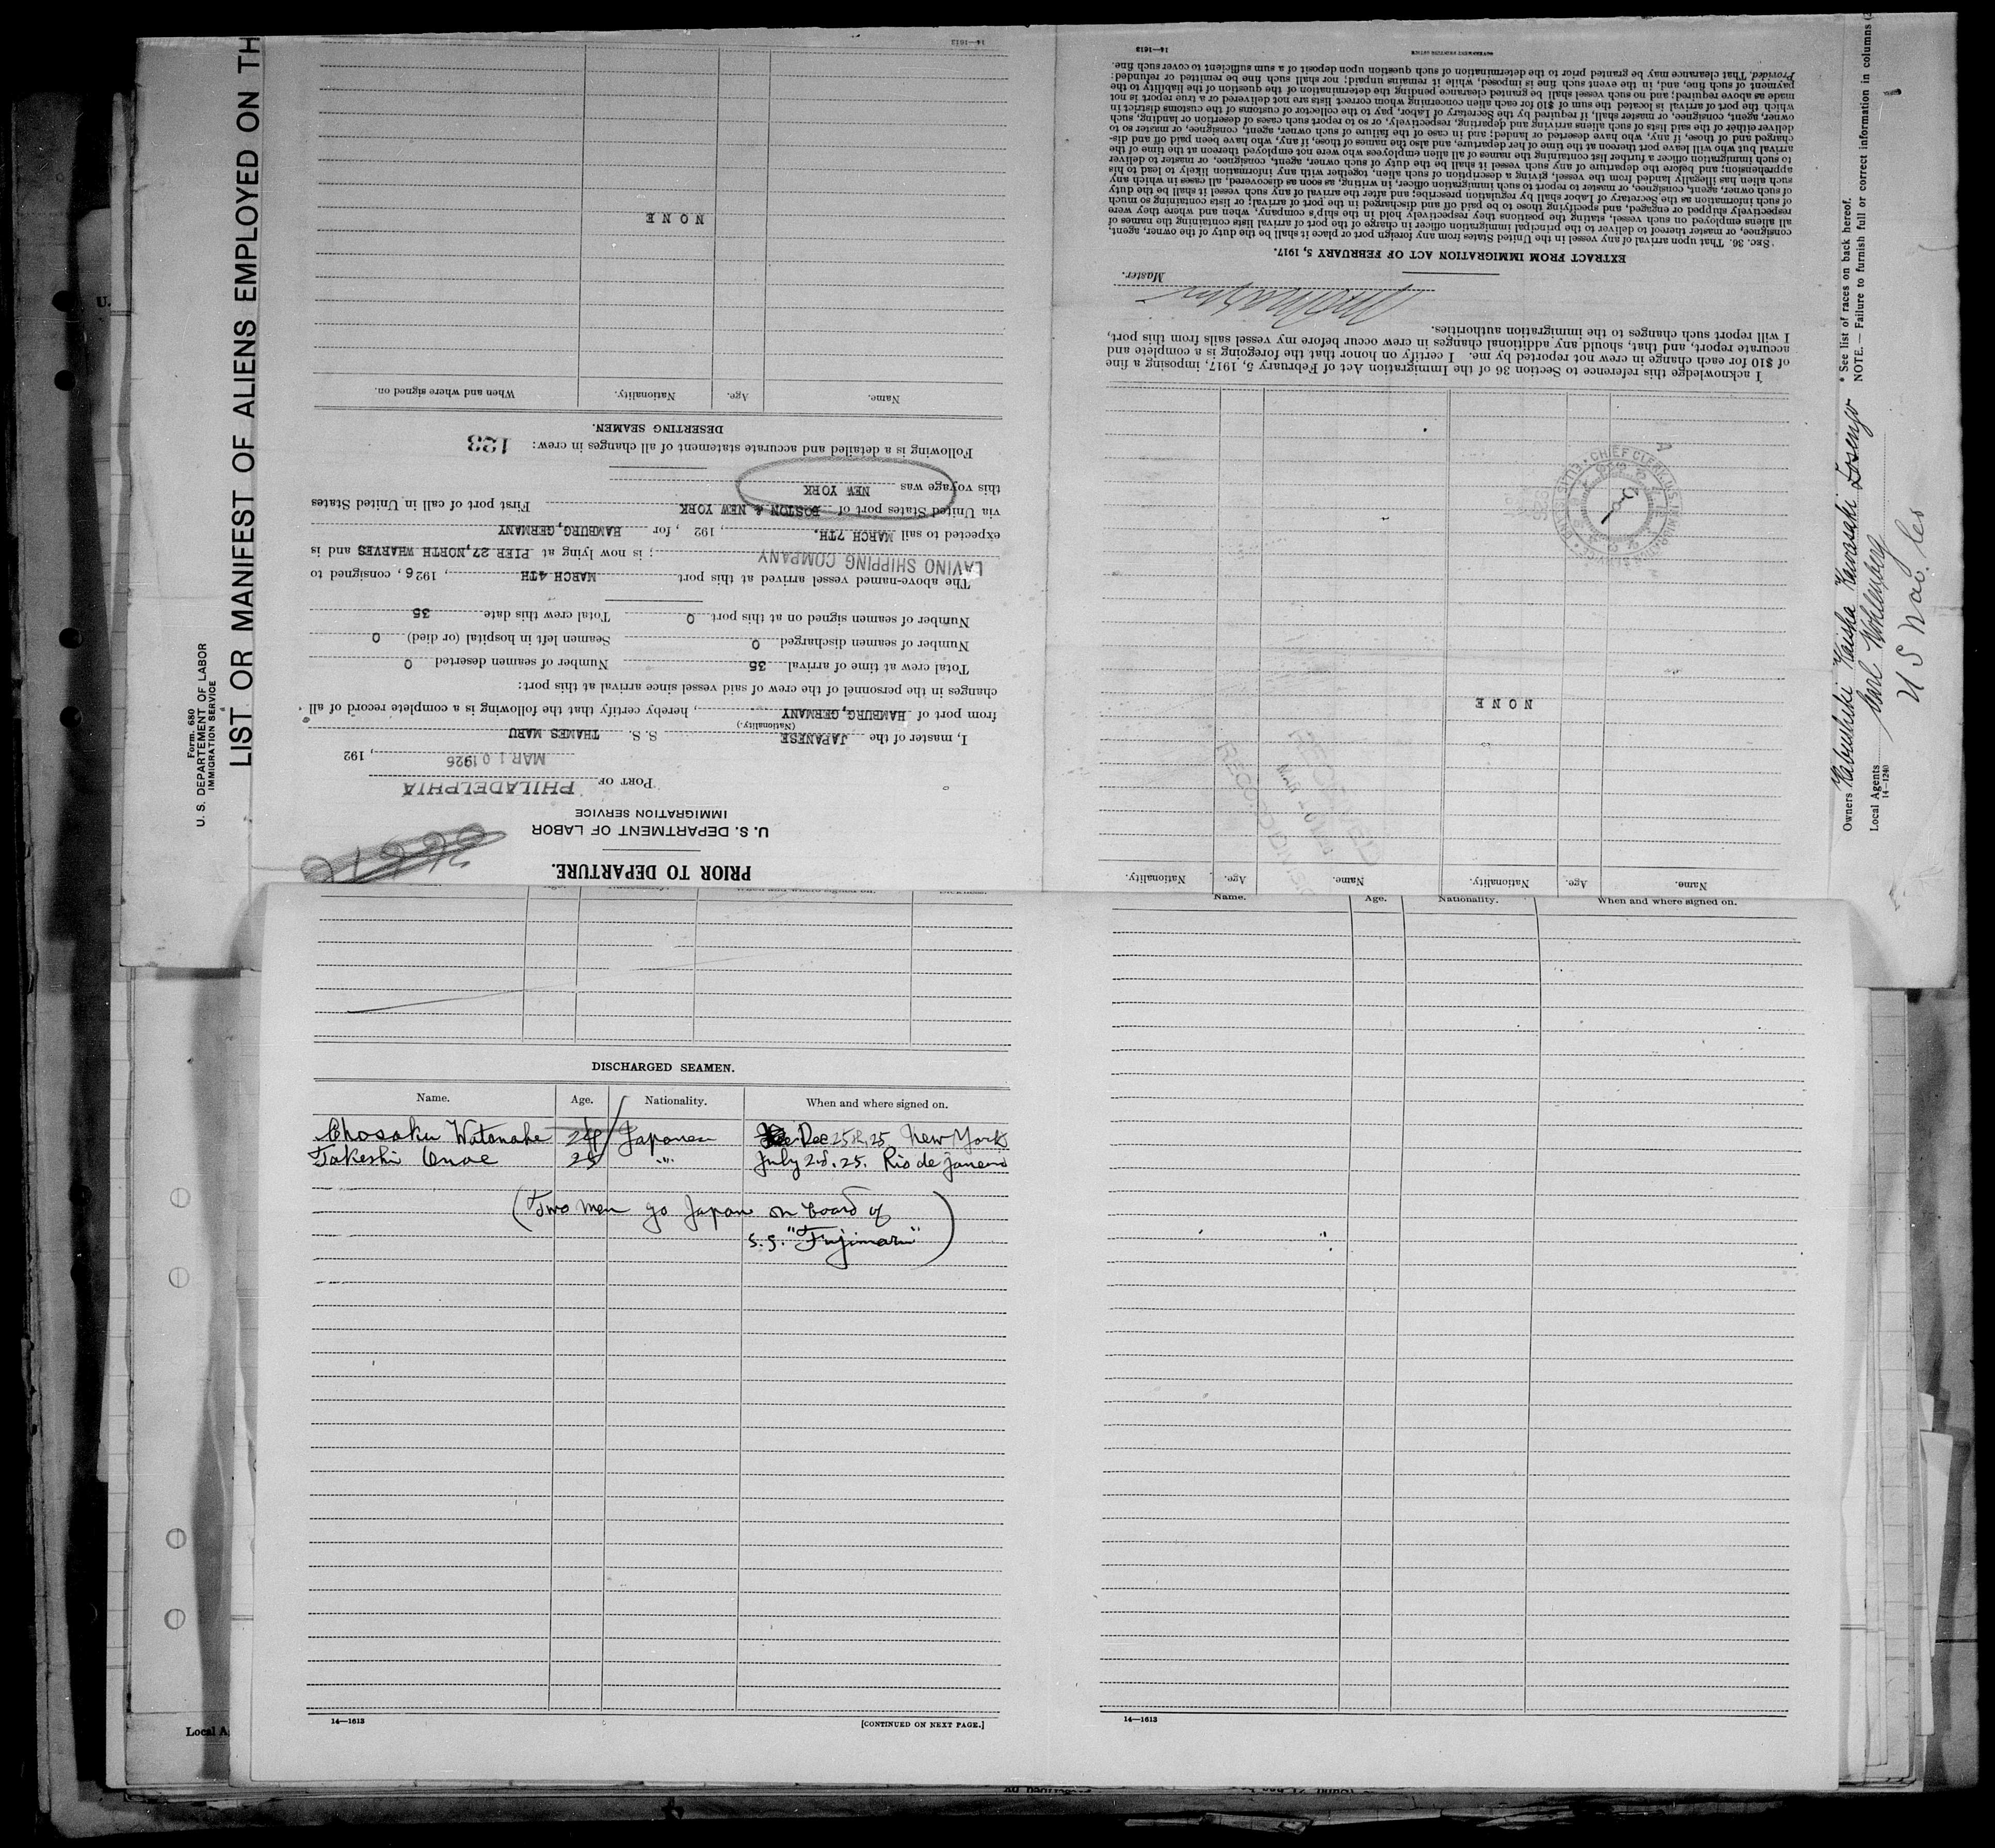 Form. 680
U. S. DEPARTEMENT OF LABOR
IMMIGRATION SERVICE
LIST OR MANIFEST OF ALIENS EMPLOYED ON TH
PRIOR TO DEPARTURE.
U. S. DEPARTMENT OF LABOR
IMMIGRATION SERVICE
PORT OF PHILADELPHIA
MAR 10 1926, 192
I, master of the JAPANESE S. S. THAMES MARU
(Nationality.)
from port of HAMBURG, GERMANY, hereby certify that the following is a complete record of all
changes in the personnel of the crew of said vessel since arrival at this port:
Total crew at time of arrival 35 Number of seamen deserted 0
Number of seamen discharged 0 Seamen left in hospital (or died) 0
Number of seamen signed on at this port 0 Total crew this date 35
The above-named vessel arrived at this port MARCH 4TH, 1926, consigned to
LAVINO SHIPPING COMPANY; is now lying at PIER 27, NORTH WHARVES and is
expected to sail MARCH 7TH., 192 , for HAMBURG, GERMANY
via United States port of BOSTON & NEW YORK First port of call in United States
this voyage was NEW YORK
Following is a detailed and accurate statement of all changes in crew: 123
DESERTING SEAMEN.
Name. Age. Nationality. When and where signed on.
NONE
14—1613
Name. Age. Nationality. Name. Age. Nationality.
NONE
I acknowledge this reference to Section 36 of the Immigration Act of February 5, 1917, imposing a fine
of $10 for each change in crew not reported by me. I certify on honor that the foregoing is a complete and
accurate report, and that, should any additional changes in crew occur before my vessel sails from this port,
I will report such changes to the immigration authorities.
Master.
EXTRACT FROM IMMIGRATION ACT OF FEBRUARY 5, 1917.
SEC. 36. That upon arrival of any vessel in the United States from any foreign port or place it shall be the duty of the owner, agent,
consignee, or master thereof to deliver to the principal immigration officer in charge of the port of arrival lists containing the names of
all aliens employed on such vessel, stating the positions they respectively hold in the ship's company, when and where they were
respectively shipped or engaged, and specifying those to be paid off and discharged in the port of arrival; or lists containing so much
of such information as the Secretary of Labor shall by regulation prescribe; and after the arrival of any such vessel it shall be the duty
of such owner, agent, consignee, or master to report to such immigration officer, in writing, as soon as discovered, all cases in which any
such alien has illegally landed from the vessel, giving a description of such alien, together with any information likely to lead to his
apprehension; and before the departure of any such vessel it shall be the duty of such owner, agent, consignee, or master to deliver
to such immigration officer a further list containing the names of all alien employees who were not employed thereon at the time of the
arrival but who will leave port thereon at the time of her departure, and also the names of those, if any, who have been paid off and dis-
charged and of those, if any, who have deserted or landed; and in case of the failure of such owner, agent, consignee, or master so to
deliver either of the said lists of such aliens arriving and departing, respectively, or so to report such cases of desertion or landing, such
owner, agent, consignee, or master shall, if required by the Secretary of Labor, pay to the collector of customs of the customs district in
which the port of arrival is located the sum of $10 for each alien concerning whom correct lists are not delivered or a true report is not
made as above required; and no such vessel shall be granted clearance pending the determination of the question of the liability to the
payment of such fine, and, in the event such fine is imposed, while it remains unpaid; nor shall such fine be remitted or refunded:
Provided, That clearance may be granted prior to the determination of such question upon deposit of a sum sufficient to cover such fine.
14—1613
GOVERNMENT PRINTING OFFICE
Owners Kabushiki Kaisha Kawasaki Zosenjo
* See list of races on back hereof.
NOTE. — Failure to furnish full or correct information in columns
Local Agents Carl
14—1240
Name. Age. Nationality. When and where signed on.
DISCHARGED SEAMEN.
Name. Age. Nationality. When and where signed on.
Chosaku Watanabe 24 Japanese Dec 25th, 25 New York
Takeshi Onoe 25 " July 28. 25. Rio de janeiro
(Two men go Japan on board of
S.S. "Fujimaru")
14—1613 [CONTINUED ON NEXT PAGE.]
14—1613
Local A